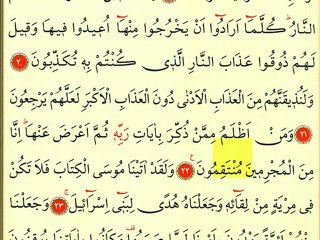 النَّارُ كُلَّمَٓا اَرَادُٓوا اَنْ يَخْرُجُوا مِنْهَٓا اُع۪يدُوا ف۪يهَا وَق۪يلَ
لَهُمْ ذُوقُوا عَذَابَ النَّارِ الَّذ۪ي كُنْتُمْ بِه۪ تُكَذِّبُونَ ﴿٢٠﴾
وَلَنُذ۪يقَنَّهُمْ مِنَ الْعَذَابِ الْاَدْنٰى دُونَ الْعَذَابِ الْاَكْبَرِ لَعَلَّهُمْ يَرْجِعُونَ
﴿٢١﴾ وَمَنْ اَظْلَمُ مِمَّنْ ذُكِّرَ بِاٰيَاتِ رَبِّه۪ ثُمَّ اَعْرَضَ عَنْهَاۜ اِنَّا
مِنَ الْمُجْرِم۪ينَ مُنْتَقِمُونَ ﴿٢٢﴾ وَلَقَدْ اٰتَيْنَا مُوسَى الْكِتَابَ فَلَا تَكُنْ
ف۪ي مِرْيَةٍ مِنْ لِقَٓائِه۪ وَجَعَلْنَاهُ هُدًى لِبَن۪ٓي اِسْرَٓائ۪لَۚ ﴿٢٣﴾ وَجَعَلْنَا